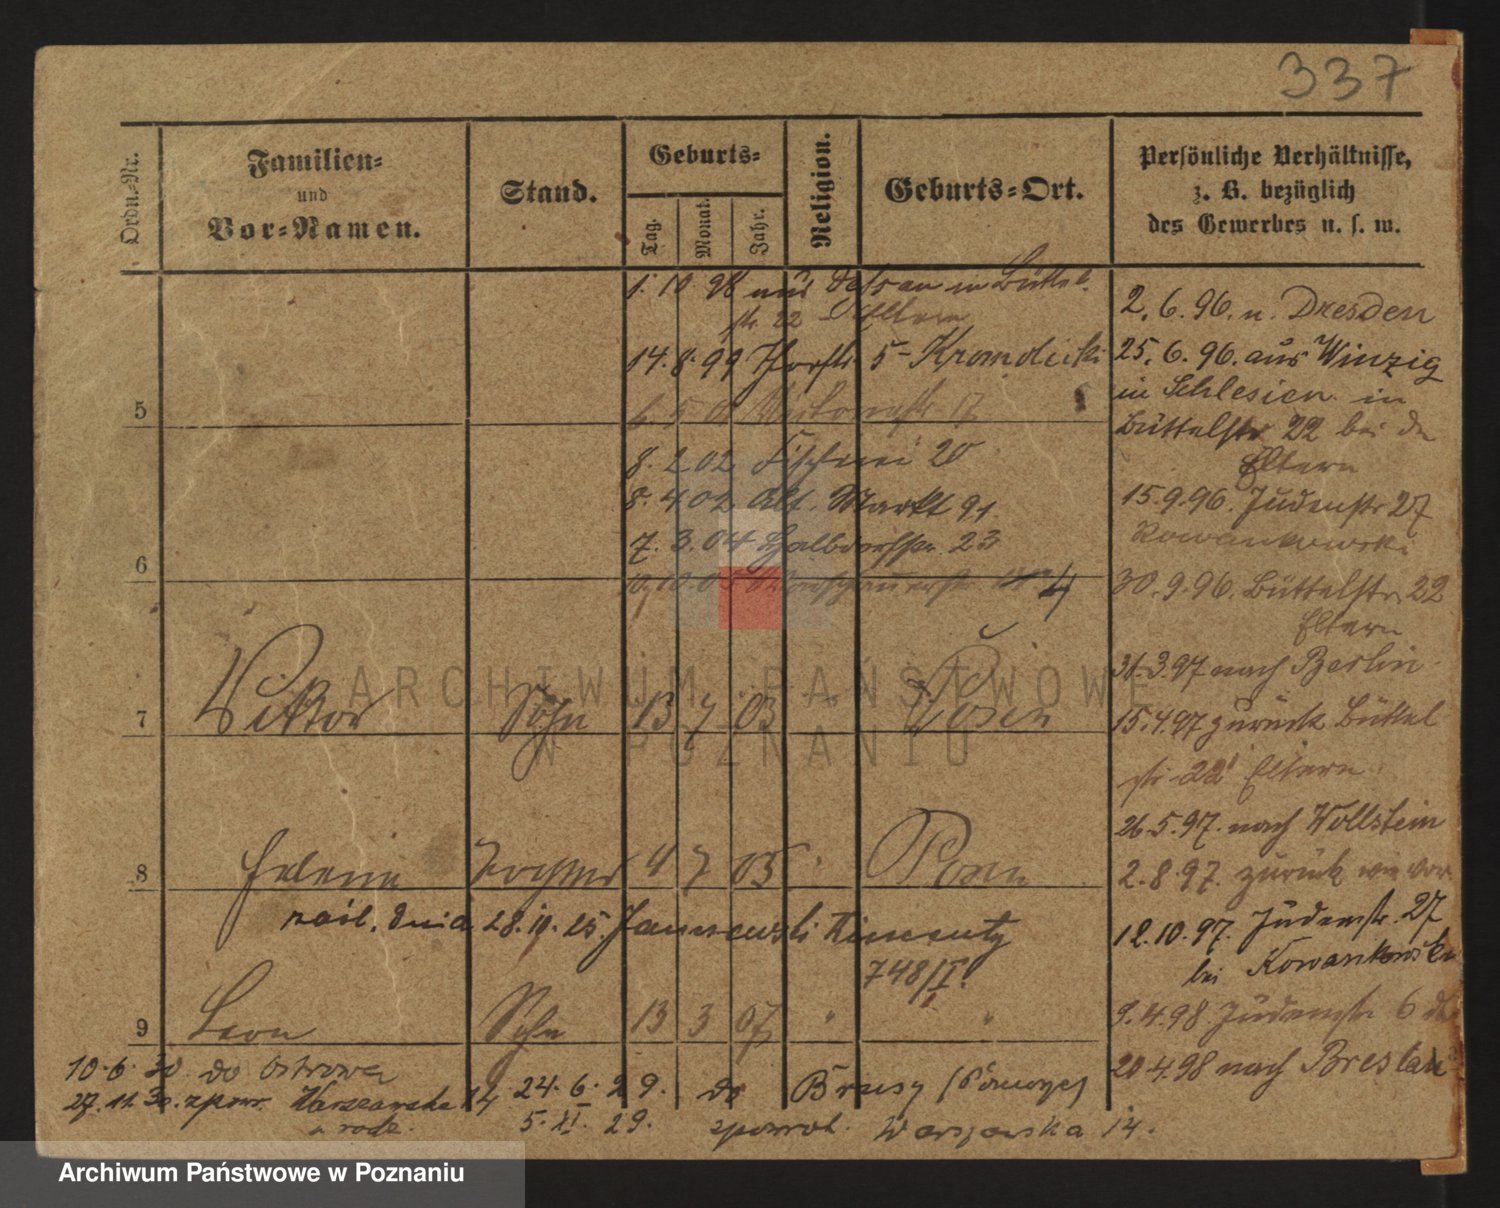 337
Ordn.-Nr.
Familien-
und
Vor-Namen.
Stand.
Geburts-
Tag. Monat. Jahr.
Religion.
Geburts-Ort.
Persönliche Verhältnisse,
z. B. bezüglich
des Gewerbes u. s. w.
1. 10 98 aus Dessau in Büttel-
str. 22 Eltern
14. 8. 99 5 Kromolicki
5
8. 2 02 Fischerei 20
8. 4 02 Alt. Markt 91
7. 3. 04 Halbdorfstr. 23
6
4
7 Viktor Sohn 13 7 03 " Posen
8 Helene Tochter 4 7 05 " Posen
28. 25. Januszewski
748/I
9 Leon Sohn 13 3 07 " "
2. 6. 96. n. Dresden
25. 6. 96. aus Winzig
in Schlesien in
Büttelstr 22 bei d.
Eltern
15. 9. 96. Judenstr 27
Kowankowski
30. 9. 96. Büttelstr. 22
Eltern
31. 3. 97 nach Berlin
15. 4. 97 zurück Büttel
str 22 Eltern
26. 5. 97. nach Wollstein
2. 8. 97. zurück wie vor
12. 10. 97. Judenstr. 27
bei Kowankowski
9. 4. 98 Judenstr 6
20. 4. 98 nach Breslau
10. 6. 30 do Ostrowa
27. 11. 30. zpowr. Warszawska 14
u rodz.
24. 6. 29. do Brusy (Pomorze)
5. XI. 29. zpowrot. Warszawska 14.
ARCHIWUM PAŃSTWOWE
W POZNANIU
Archiwum Państwowe w Poznaniu